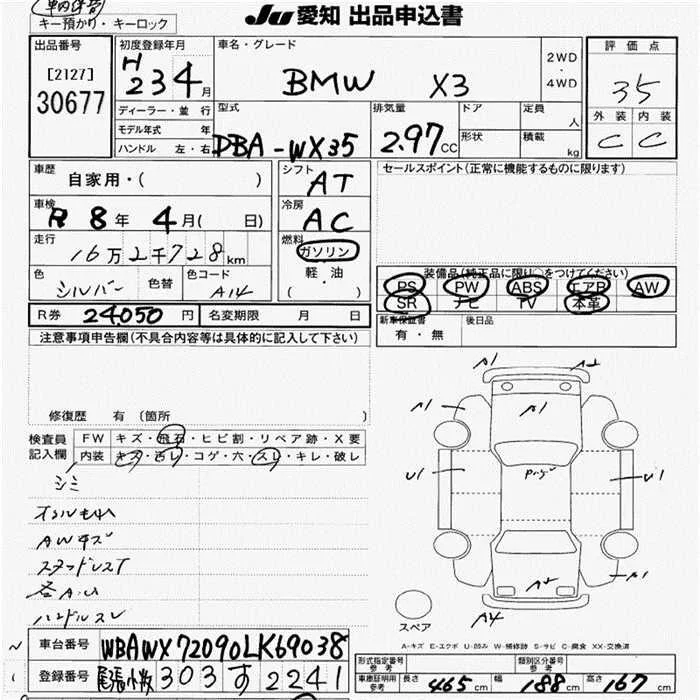 Ju 愛知 出品申込書
キー預かり・キーロック
出品番号
[2127]
30677
初度登録年月
H23 4月
車名・グレード
BMW X3
2WD
・
4WD
評価点
35
外装 内装
C C
ディーラー・並行
モデル年式 年
ハンドル 左・右
型式
DBA-WX35
排気量
2.97CC
ドア
形状
定員
人
積載
kg
車歴
自家用・( )
車検
R 8年 4月( 日)
走行
16万2千728km
色
シルバー
色替
色コード
A14
シフト
AT
冷房
AC
燃料
ガソリン
・
軽・油
( )
セールスポイント(正常に機能するものに限ります)
装備品(純正品に限り○をつけてください)
PS PW ABS エアB AW
SR ナビ TV 本革
新車保証書
有・無
後日品
R券 24,050円
名変期限 月 日
注意事項申告欄(不具合内容等は具体的に記入して下さい)
修復歴 有(箇所 )
検査員
記入欄
FW キズ・飛石・ヒビ割・リペア跡・X要
内装 キズ・汚レ・コゲ・穴・スレ・キレ・破レ
シミ
AWキズ
スタッドレスT
各A・U
ハンドルスレ
A1 A2
A1 A1
U1 U1
A2 A1
A4
スペア
A-キズ E-エクボ U-凹み W-補修跡 S-サビ C-腐食 XX-交換済
車台番号
WBAWX72090LK69038
登録番号
尾張小牧 303 す 2241
形式指定番号
参考
類別区分番号
参考
車庫証明用
参考
長さ 465cm 幅 188cm 高さ 167cm